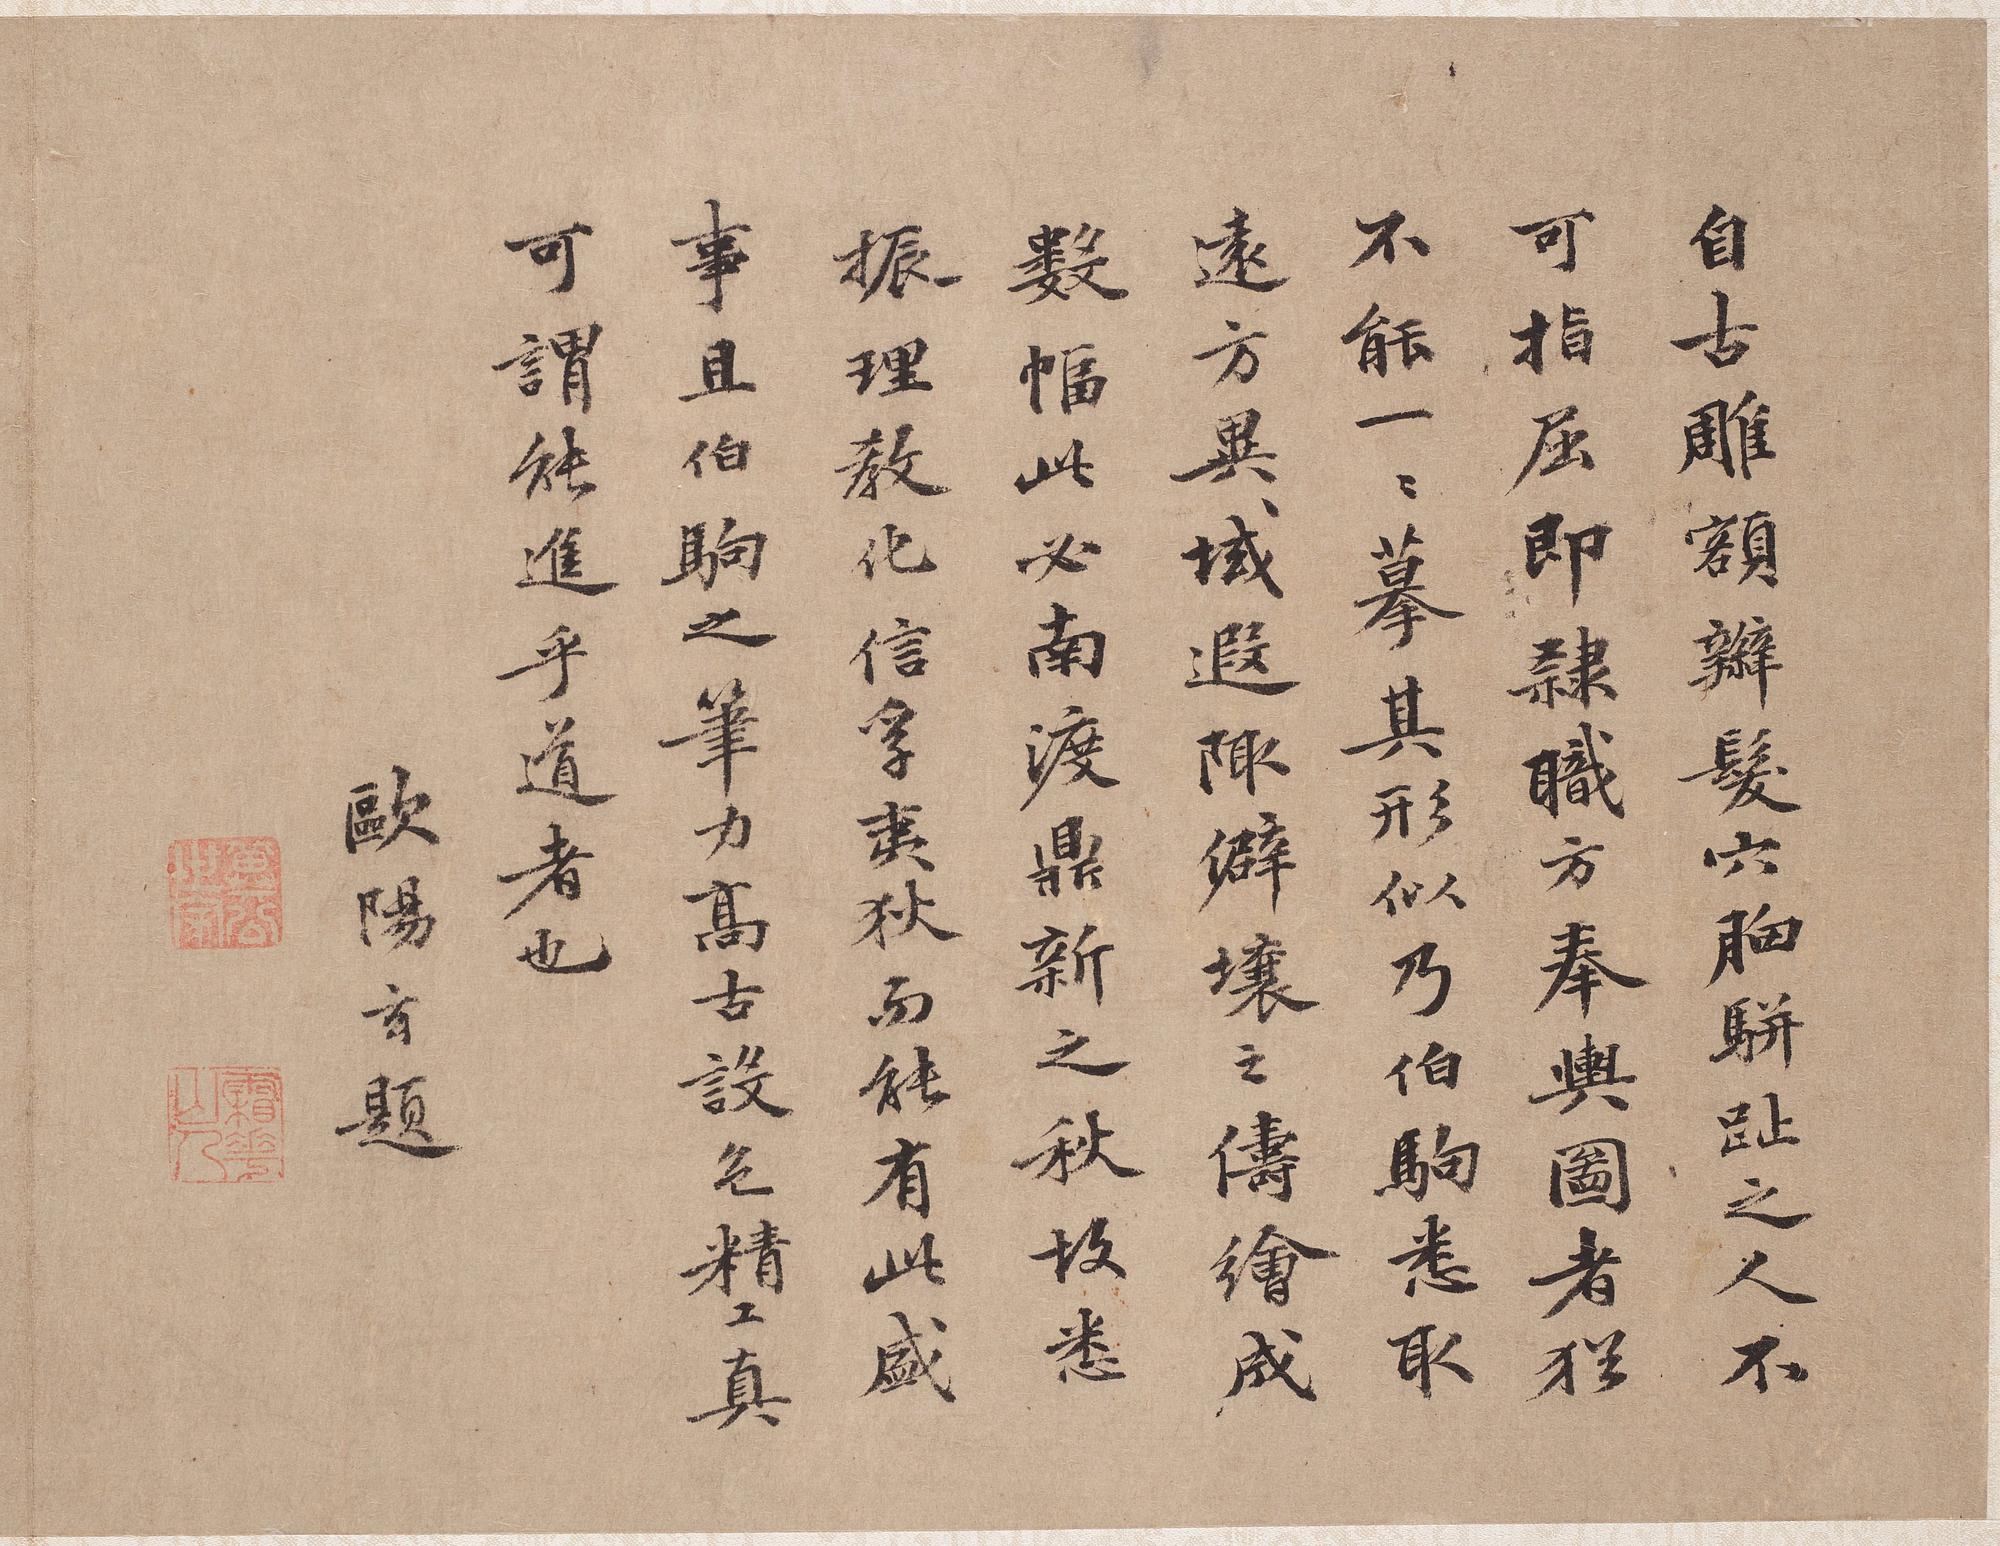 自古雕額辮髮穴胸駢趾之人不
可指屈即隸職方奉輿圖者猶
不能一〻摹其形似乃伯駒悉取
遠方異域遐陬僻壤之儔繪成
数幅此必南渡鼎新之秋故悉
振理教化信孚夷狄而能有此盛
事且伯駒之筆力高古設色精工真
可謂能進乎道者也
歐陽玄題